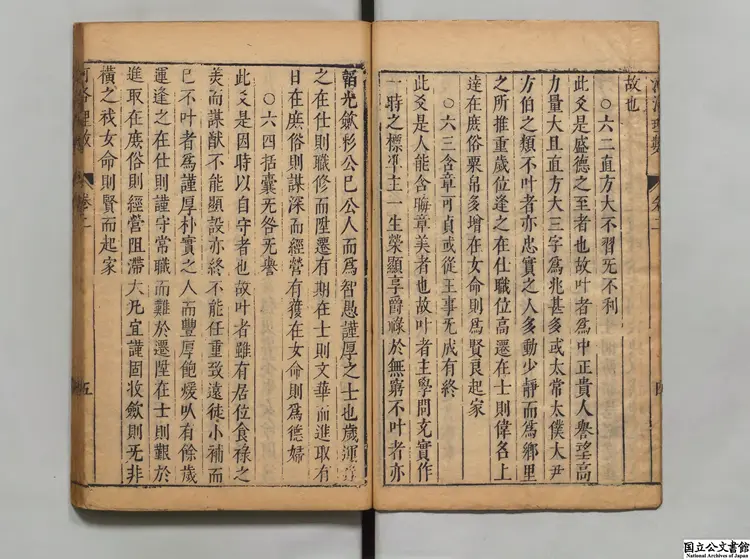 河洛理數 卷二
故也
○六二直方大不習无不利
此爻是盛德之至者也故叶者爲中正貴人譽望高
力量大且直方大三字爲兆甚多或太常太僕大尹
方伯之類不叶者亦忠實之人多動少靜而爲鄉里
之所推重歲位逢之在仕職位高遷在士則偉名上
達在庶俗粟帛多增在女命則爲賢良起家
○六三含章可貞或從王事无成有終
此爻是人能含晦章美者也故叶者主學問充實作
一時之標準主一生榮顯享爵祿於無窮不叶者亦
韜光斂彩公巳公人而爲智愚謹厚之士也歲運逢
之在仕則職修而陞遷有期在士則文華而進取有
日在庶俗則謀深而經營有獲在女命則爲德婦
○六四括囊无咎无譽
此爻是因時以自守者也故叶者雖有居位食祿之
美而謀猷不能顯設亦終不能任重致遠徒小補而
巳不叶者爲謹厚朴實之人而豐厚飽煖以有餘歲
運逢之在仕則謹守常職而難於遷陞在士則艱於
進取在庶俗則經營阻滯大凡宜謹固收斂則无非
橫之戕女命則賢而起家
河洛理數 卷二 五
国立公文書館
National Archives of Japan